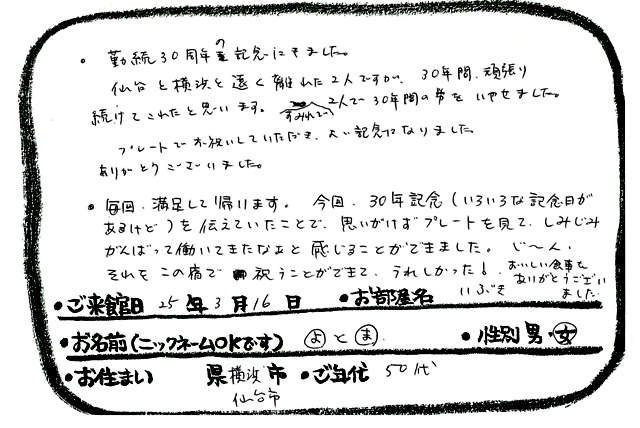 ・勤続30周年の記念にきました。
仙台と横浜と遠く離れた2人ですが、30年間、頑張り
続けてこれたと思います。すみれで 2人で30年間の労をいやせました。
プレートでお祝いしていただき、よい記念になりました
ありがとうございました。
・毎回、満足して帰ります。今回、30年記念(いろいろな記念日が
あるけど)を伝えていたことで、思いがけずプレートを見て、しみじみ
がんばって働いてきたなぁと感じることができました。じ〜ん、
それをこの宿で祝うことができて、うれしかった!おいしい食事を
ありがとうござい
ました
・ご来館日 25年3月16日 ・お部屋名 いぶき
・お名前(ニックネームOKです) よとま ・性別 男・女
・お住まい 県横浜市 ・ご年代 50代
仙台市